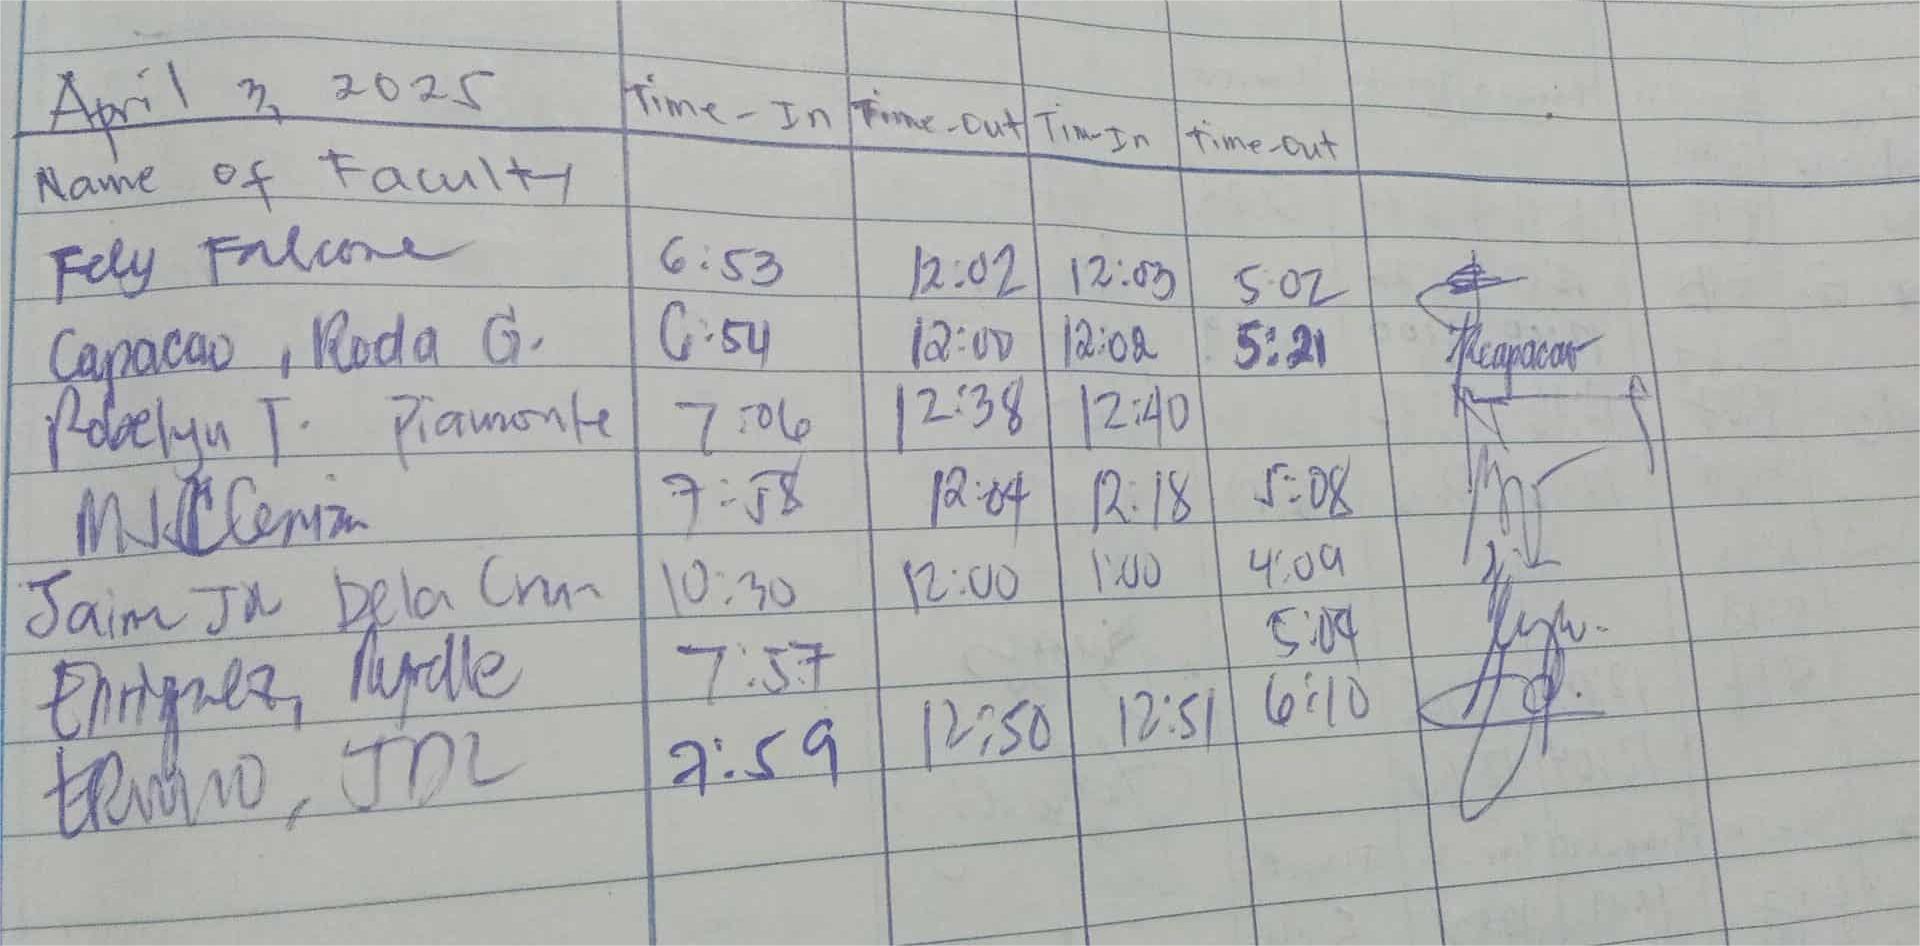 April 3, 2025 Time-In Time-Out Tim-In Time-out
Name of Faculty
Fely Falcone 6:53 12:02 12:03 5:02
Capacao, Roda G. 6:54 12:00 12:02 5:21 Rcapacao
Roselyn T. Piamonte 7:06 12:38 12:40
7:58 12:04 12:18 5:08
Jaim Jr Dela Cruz 10:30 12:00 1:00 4:09
Enriquez, 7:57 5:09
JDL 7:59 12:50 12:51 6:10